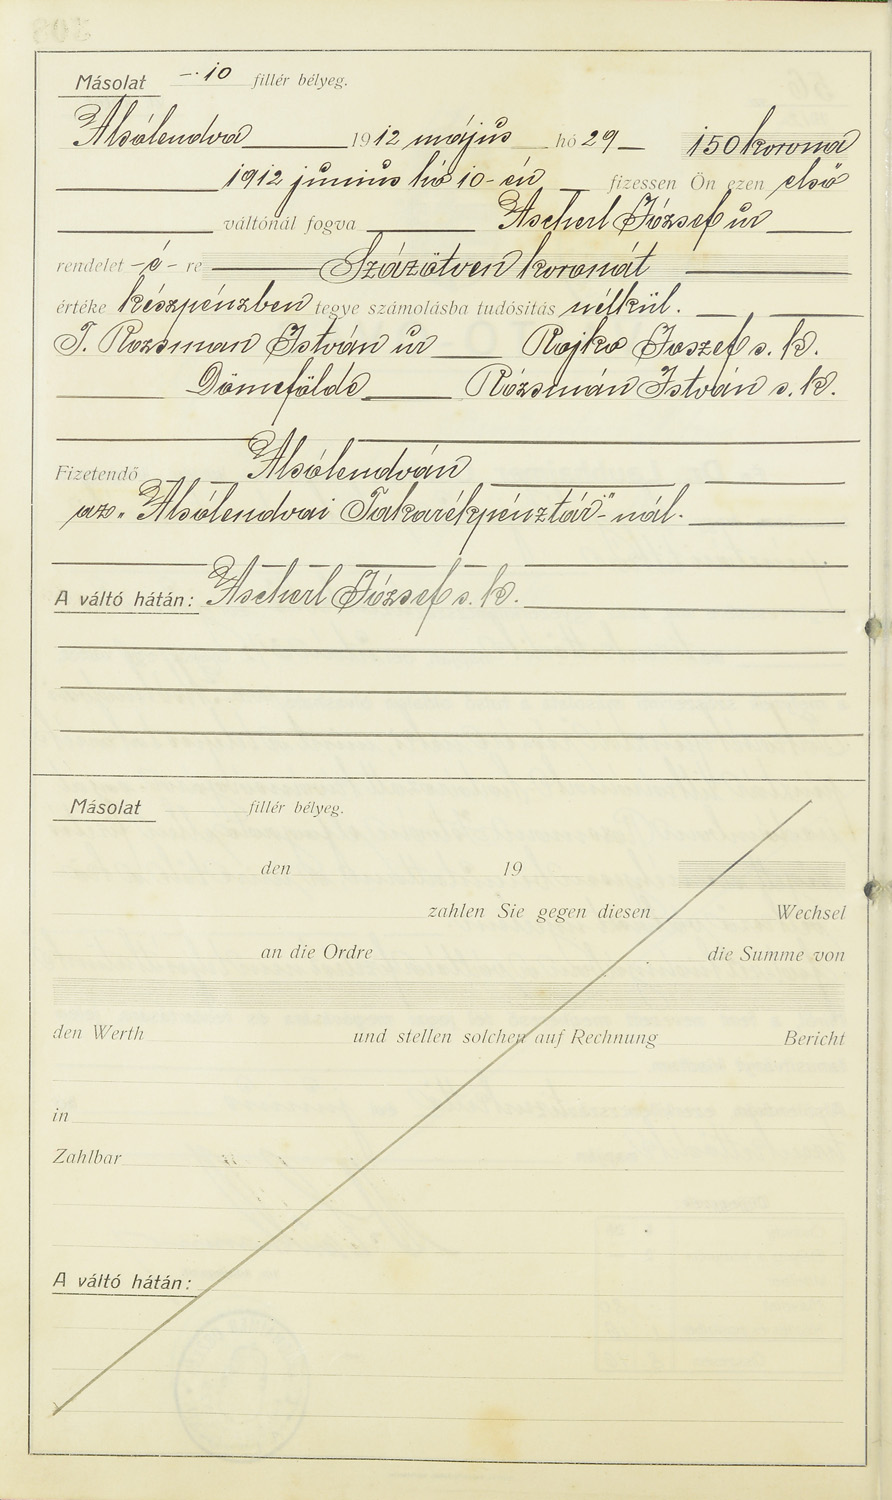 Másolat -·10 fillér bélyeg.
Alsólendva 1912 május hó 29 150 korona
1912 junius hó 10-én fizessen Ön ezen első
váltónál fogva Ascherl József úr
rendelet -é- re Százötven koronát
értéke készpénzben tegye számolásba tudósitás nélkül.
T. Rozsman István úr Rojko Joszef s. k.
Dömeföldе Rózsmán István s. k.
Fizetendő Alsólendván
az „Alsólendvai Takarékpénztár"-nál.
A váltó hátán: Ascherl József s. k.
Másolat fillér bélyeg.
den 19
zahlen Sie gegen diesen Wechsel
an die Ordre die Summe von
den Werth und stellen solchen auf Rechnung Bericht
in
Zahlbar
A váltó hátán: